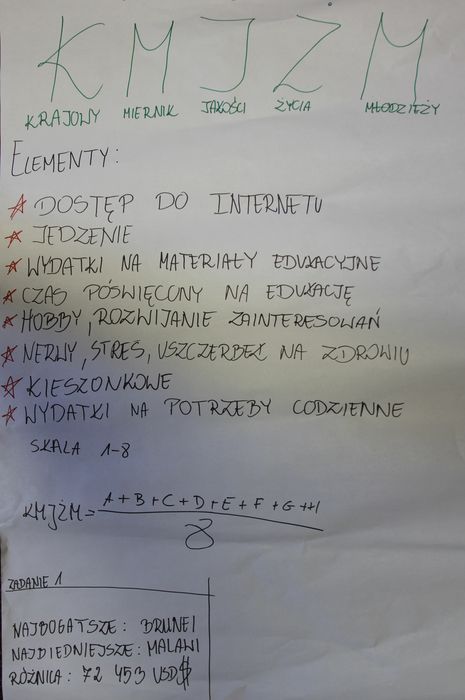 K M J Z M
KRAJOWY MIERNIK JAKOŚCI ŻYCIA MŁODZIEŻY
ELEMENTY:
DOSTĘP DO INTERNETU
JEDZENIE
WYDATKI NA MATERIAŁY EDUKACYJNE
CZAS POŚWIĘCONY NA EDUKACJĘ
HOBBY, ROZWIJANIE ZAINTERESOWAŃ
NERWY, STRES, USZCZERBEK NA ZDROWIU
KIESZONKOWE
WYDATKI NA POTRZEBY CODZIENNE
SKALA 1-8
KMJŻM = A+B+C+D+E+F+G+H
8
ZADANIE 1
NAJBOGATSZE: BRUNEI
NAJBIEDNIEJSZE: MALAWI
RÓŻNICA: 72 453 USD$